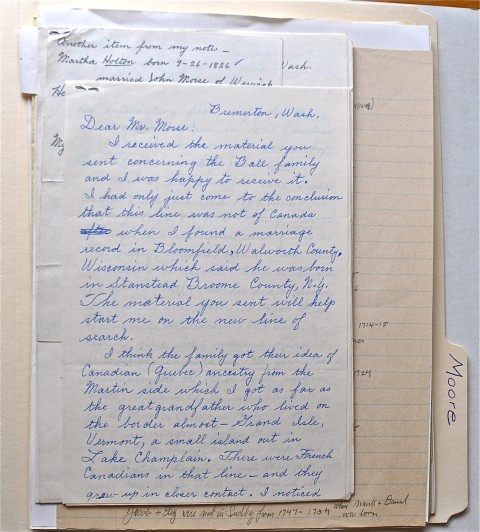 Another item from my notes –
Martha Holton born 9-26-1826 ✓
Wash.
married John Morse of Warwick
He
My
Bremerton, Wash.
Dear Mr. Morse:
I received the material you
sent concerning the Ball family
and I was happy to recieve it.
I had only just come to the conclusion
that this line was not of Canada
after when I found a marriage
record in Bloomfield, Walworth County,
Wisconsin which said he was born
in Stanstead Broome County, N.Y.
The material you sent will help
start me on the new line of
search.
I think the family got their idea of
Canadian (Quebec) ancestry from the
Martin side which I got as far as
the great grandfather who lived on
the border almost – Grand Isle,
Vermont, a small island out in
Lake Champlain. There were French
Canadians in that line – and they
grew up in closer contact. I noticed
1714-15
1724
Moore
were not in Sudbury from 1747-1754 when
born